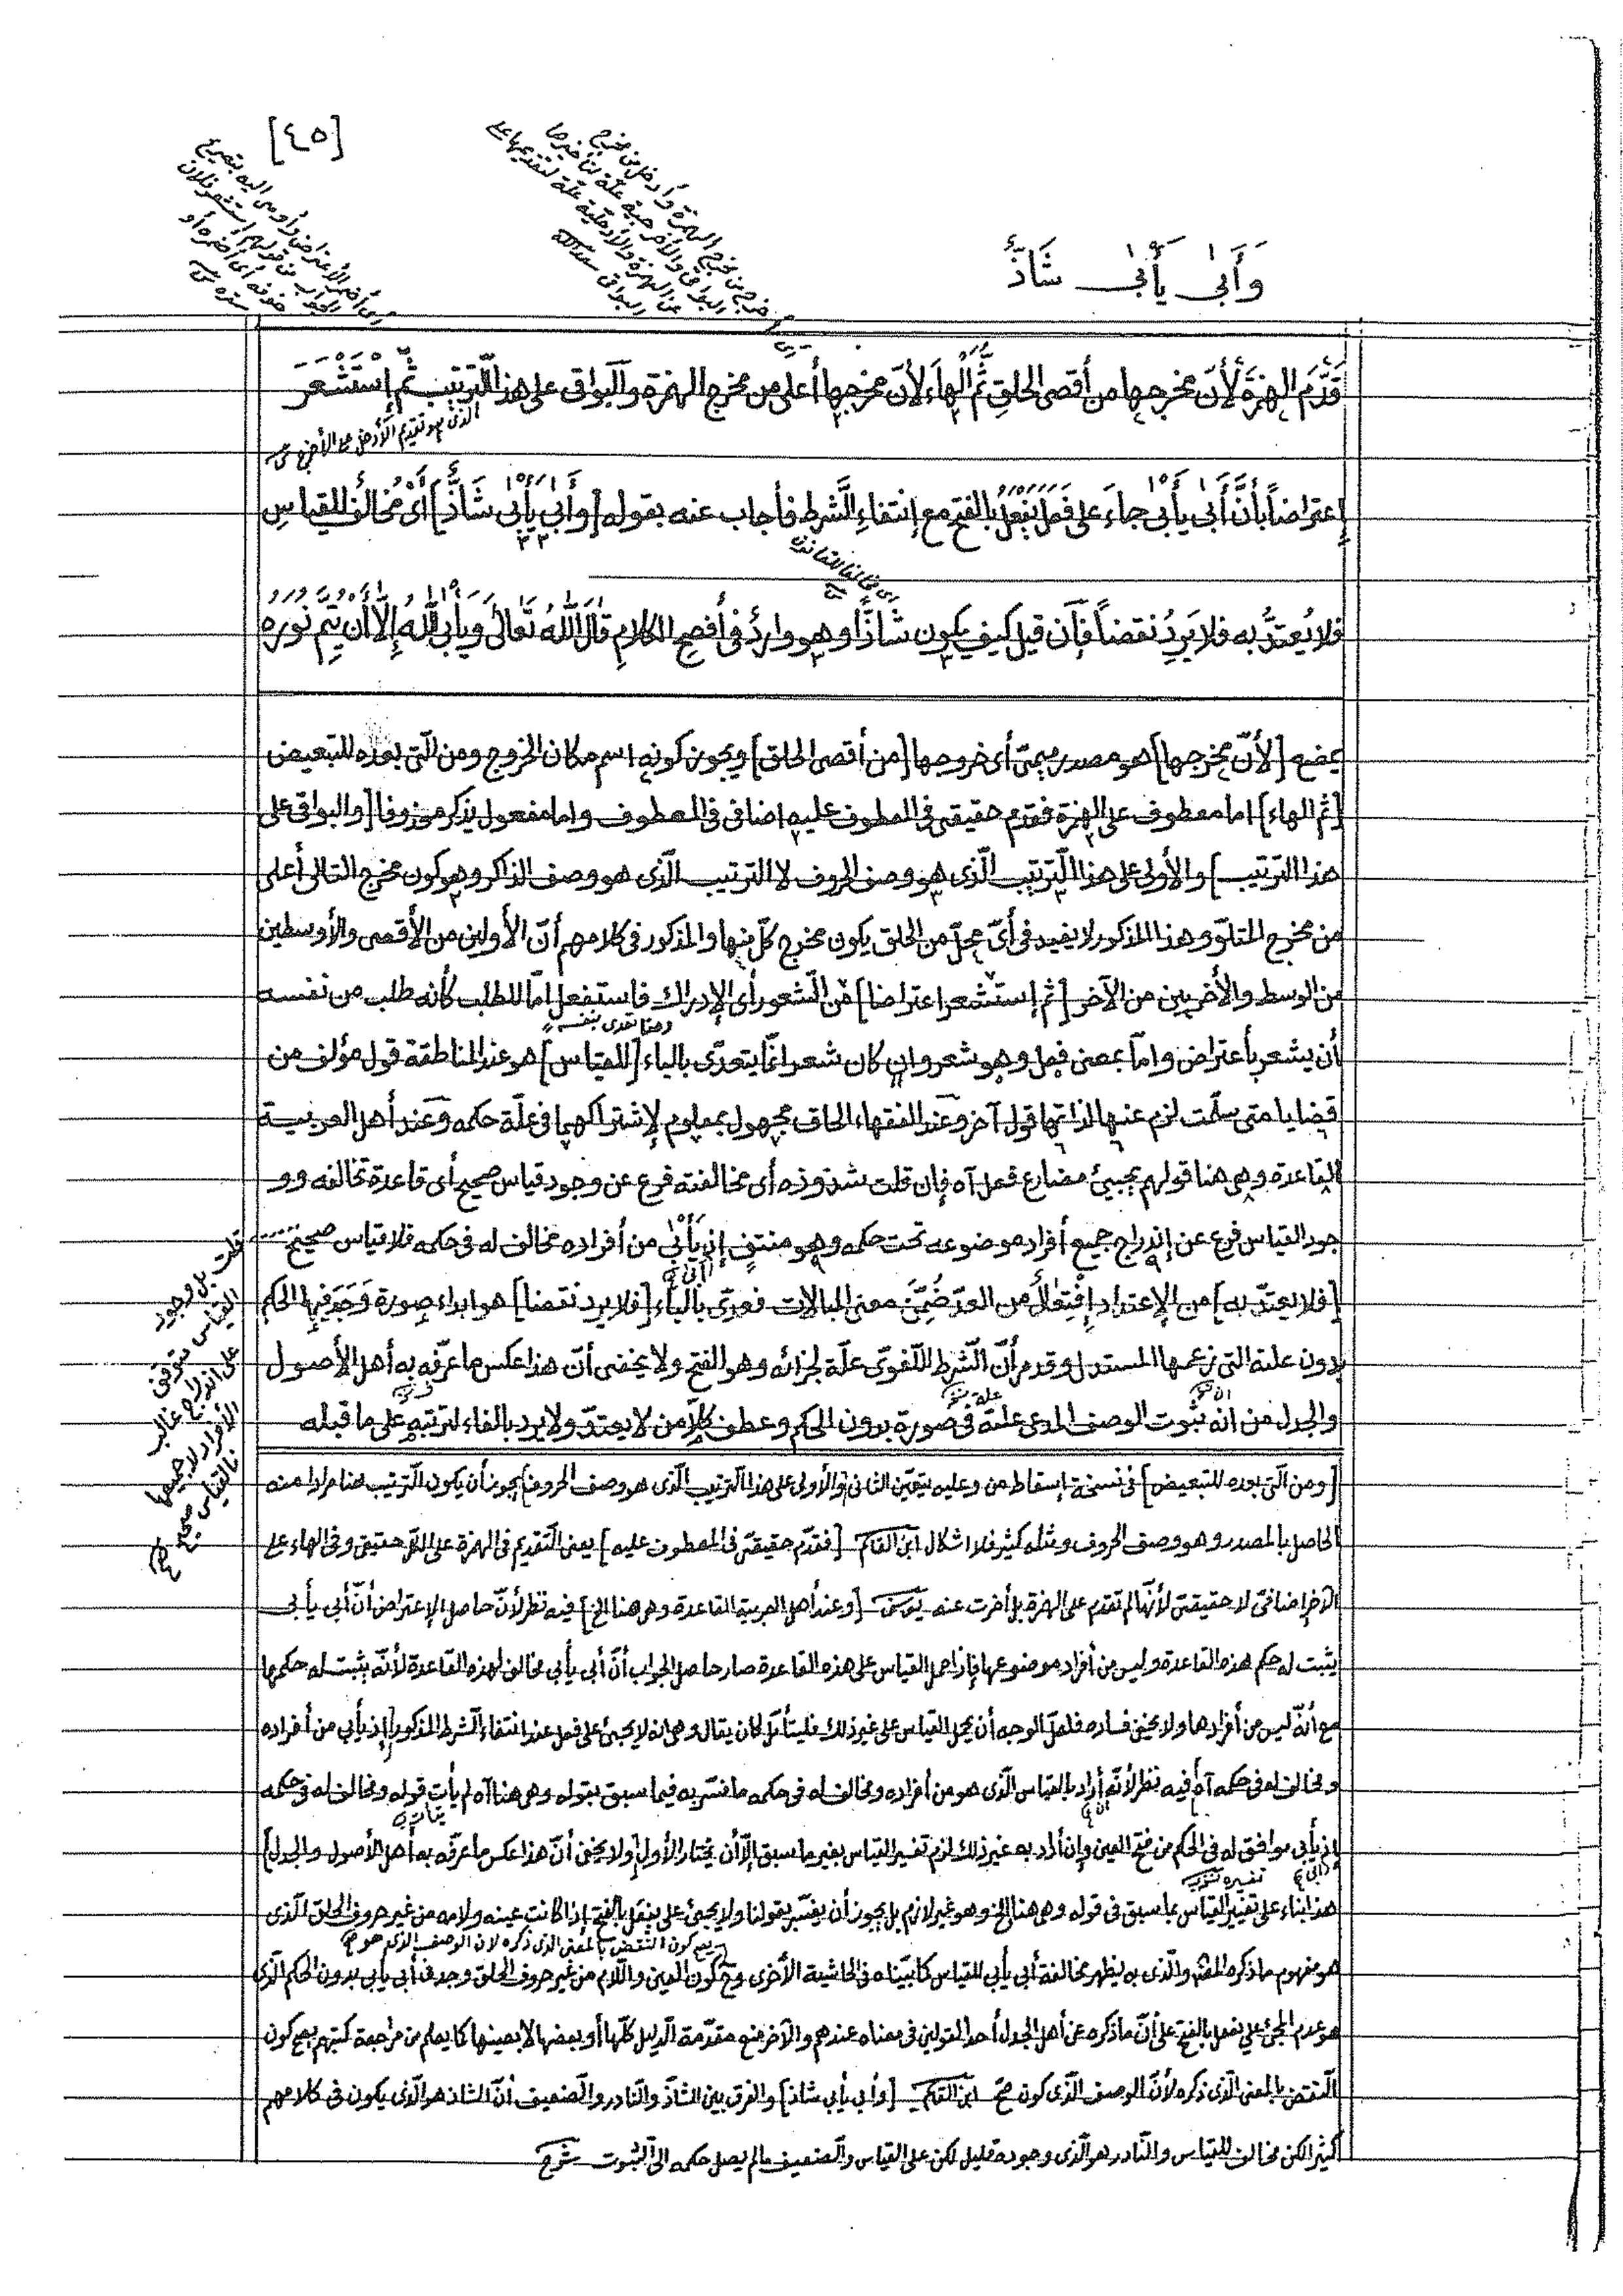 [٤٥]
وَأَبىٰ يَأْبىٰ شَاذٌّ
قَدَّمَ الهمزَةَ لأنَّ مخرجها من أقصى الحلقِ ثُمَّ الْهاءَ لأنّ مخرجها أعلى من مخرج الهمزة والبواقى على هذا التّرتيب ثُمَّ اسْتَشْعَرَ
الذى هو تقديم الأدخل على الأخرج
إعتراضاً بأنَّ أَبىٰ يأْبىٰ جاءَ على فَعَلَ يَفْعَلُ بالفتح مع إنتفاءِ الشَّرط فأجاب عنه بقوله [وأَبىٰ يَأْبىٰ شَاذٌّ] أىْ مُخالفٌ للقياسِ
فلا يُعتدُّ به فلا يَرِدُ نقضاً فإن قيل كيف يكون شاذّاً وهو واردٌ فى أفصح الكلامِ قالَ اللّٰهُ تَعَالىٰ وَيَأْبىَ اللّٰهُ إلّا أنْ يُتِمَّ نُورَهُ
بمضع [لأنّ مخرجها] هو مصدر ميمىّ أى خروجها [من أقصى الحلق] ويجوز كونه اسم مكان الخروج ومن الّتى بعده للتبعيض
[ثم الهاء] اما معطوف على الهمزة فقدم حقيقى فى المعطوف عليه اضافى فى المعطوف واما مفعول يذكر محذوفا [والبواقى على
هذا الترتيب] والأولى على هذا الّترتب الّذى هو وصف الحروف لا الترتيب الّذى هو وصف الذاكر وهو كون مخرج التالى أعلى
من مخرج المتلوّ وهذا المذكور لا يفيد فى أىّ محلّ من الحلق يكون مخرج كلّ منها والمذكور فى كلامهم أنّ الأولين من الأقصى والأوسطين
من الوسط والأخريين من الآخر [ثم إستشعر اعتراضا] من الّشعور أى الإدراك فاستفعل امّا للطلب كأنه طلب من نفسه
وهنا تعدى بنفسه
أن يشعر بأعتراض وامّا بمعنى فعل وهو شعر وان كان شعر انّما يتعدّى بالباء [للقياس] هو عند المناطقة قول مؤلف من
قضايا متى سلّمت لزم عنها لذاتها قول آخر وعند الفقهاء الحاق مجهول بمعلوم لإشتراكهما فى علّة حكمه وعند أهل العربية
القاعدة وهى هنا قولهم يجيئ مضارع فعل آه فإن قلت شذوذه أى مخالفته فرع عن وجود قياس صحيح أى قاعدة تخالفه وو
جود القياس فرع عن إندراج جميع أفراد موضوعه تحت حكمه وهو منتفٍ إذ يَأْبىٰ من أفراده مخالف له فى حكمه فلا قياس صحيح
[فلا يعتدّ به] من الإعتداد إفْتِعَالٌ من العدّ ضُمِّنَ معنى المبالات فعدّى بالباء [فلا يرد نقضا] هو ابداء صورة وَجَدَ فيها الحكم
بدون علته التى زعمها المستدل وقد مر أنّ الشّرط اللّغوىّ علّة لجزائه وهو الفتح ولا يخفى أنّ هذا عكس ما عرّفه به أهل الأصول
والجدل من انه ثبوت الوصف المدعى علته فى صورة بدون الحكم وعطف كلاًّ من لا يعتدّ ولا يرد بالفاء لترتبه على ما قبله
قلت بل وجود
القياس متوقف
على اندراج غالب
الأفراد لا جميعها
فالقياس صحيح
[ومن الّتى بعده للتبعيض] فى نسخة إسقاط من وعليه يتعيّن الثانى [والأولى على هذا الّترتب الّذى هو وصف الحروف] يجوز أن يكون الّترتيب هنا مرادا منه
الحاصل بالمصدر وهو وصف الحروف ومثله كثير فلا اشكال ابن القاسم [فقدّم حقيقىّ فى المعطوف عليه] يعنى التّقديم فى الهمزة على الكلّ حقيقى وفى الهاء على
الآخر اضافىّ لا حقيقىّ لأنّها لم تقدم على الهمزة بل أخرت عنه [وعند أهل العربية القاعدة وهى هنا الخ] فيه نظر لأنّ حاصل الإعتراض أنّ أبى يأبى
يثبت له حكم هذه القاعدة وليس من أفراد موضوعها فإذا حمل القياس على هذه القاعدة صار حاصل الجواب أنّ أبى يأبى مخالف لهذه القاعدة لأنّه يثبت له حكمها
مع أنّه ليس من أفرادها ولا يخفى فساده فلعلّ الوجه أن يحمل القياس على غير ذلك فليتأمّل كان يقال وهى انه لا يجيئ على فعل عند انتفاء الّشرط المذكور [إذ يأبى من أفراده
ومخالف له فى حكمه آه] فيه نظر لأنّه أراد بالقياس الّذى هو من أفراده ومخالف له فى حكمه ما فسّر به فيما سبق بقوله وهى هنا آه لم يأت قوله ومخالف له فى حكمه
إذ يأبى موافق له فى الحكم من فتح العين وإن أراد به غير ذلك لزم تفسير القياس بغير ما سبق إلّا أن يختار الأول [ولا يخفى أنّ هذا عكس ما عرّفه به أهل الأصول والجدل]
هذا بناء على تفسير القياس بما سبق فى قوله وهى هنا الخ وهو غير لازم بل يجوز أن يفسّر بقولنا ولا يجيئ على يفعَل بالفتح إذا كانت عينه ولامه من غير حروف الحلق الّذى
يصح كون النقض بالمعنى الذى ذكره لان الوصف الذى هو
هو مفهوم ما ذكره المصنف والّذى به يظهر مخالفة أبى يأبى للقياس كما بيّناه فى الحاشية الأخرى وح كون العين واللّام من غير حروف الحلق وجد فى أبى يأبى بدون الحكم الّذى
هو عدم المجئ على يفعل بالفتح على أنّ ما ذكره عن أهل الجدل أحد القولين فى معناه عندهم والآخر منع مقدّمة الدّليل كلّها أو بعضها لا بعينها كما يعلم من مراجعة كتبهم يصح كون
الّنقض بالمعنى الّذى ذكره لأنّ الوصف الّذى كون صح ابن القاسم [وأبى يأبى شاذ] والفرق بين الشاذّ والنّادر والّضعيف أنّ الشاذ هو الّذى يكون فى كلامهم
كثيرا لكن مخالف للقياس والنّادر هو الّذى وجوده قليل لكن على القياس والّضعيف ما لم يصل حكمه الى الّثبوت شرح